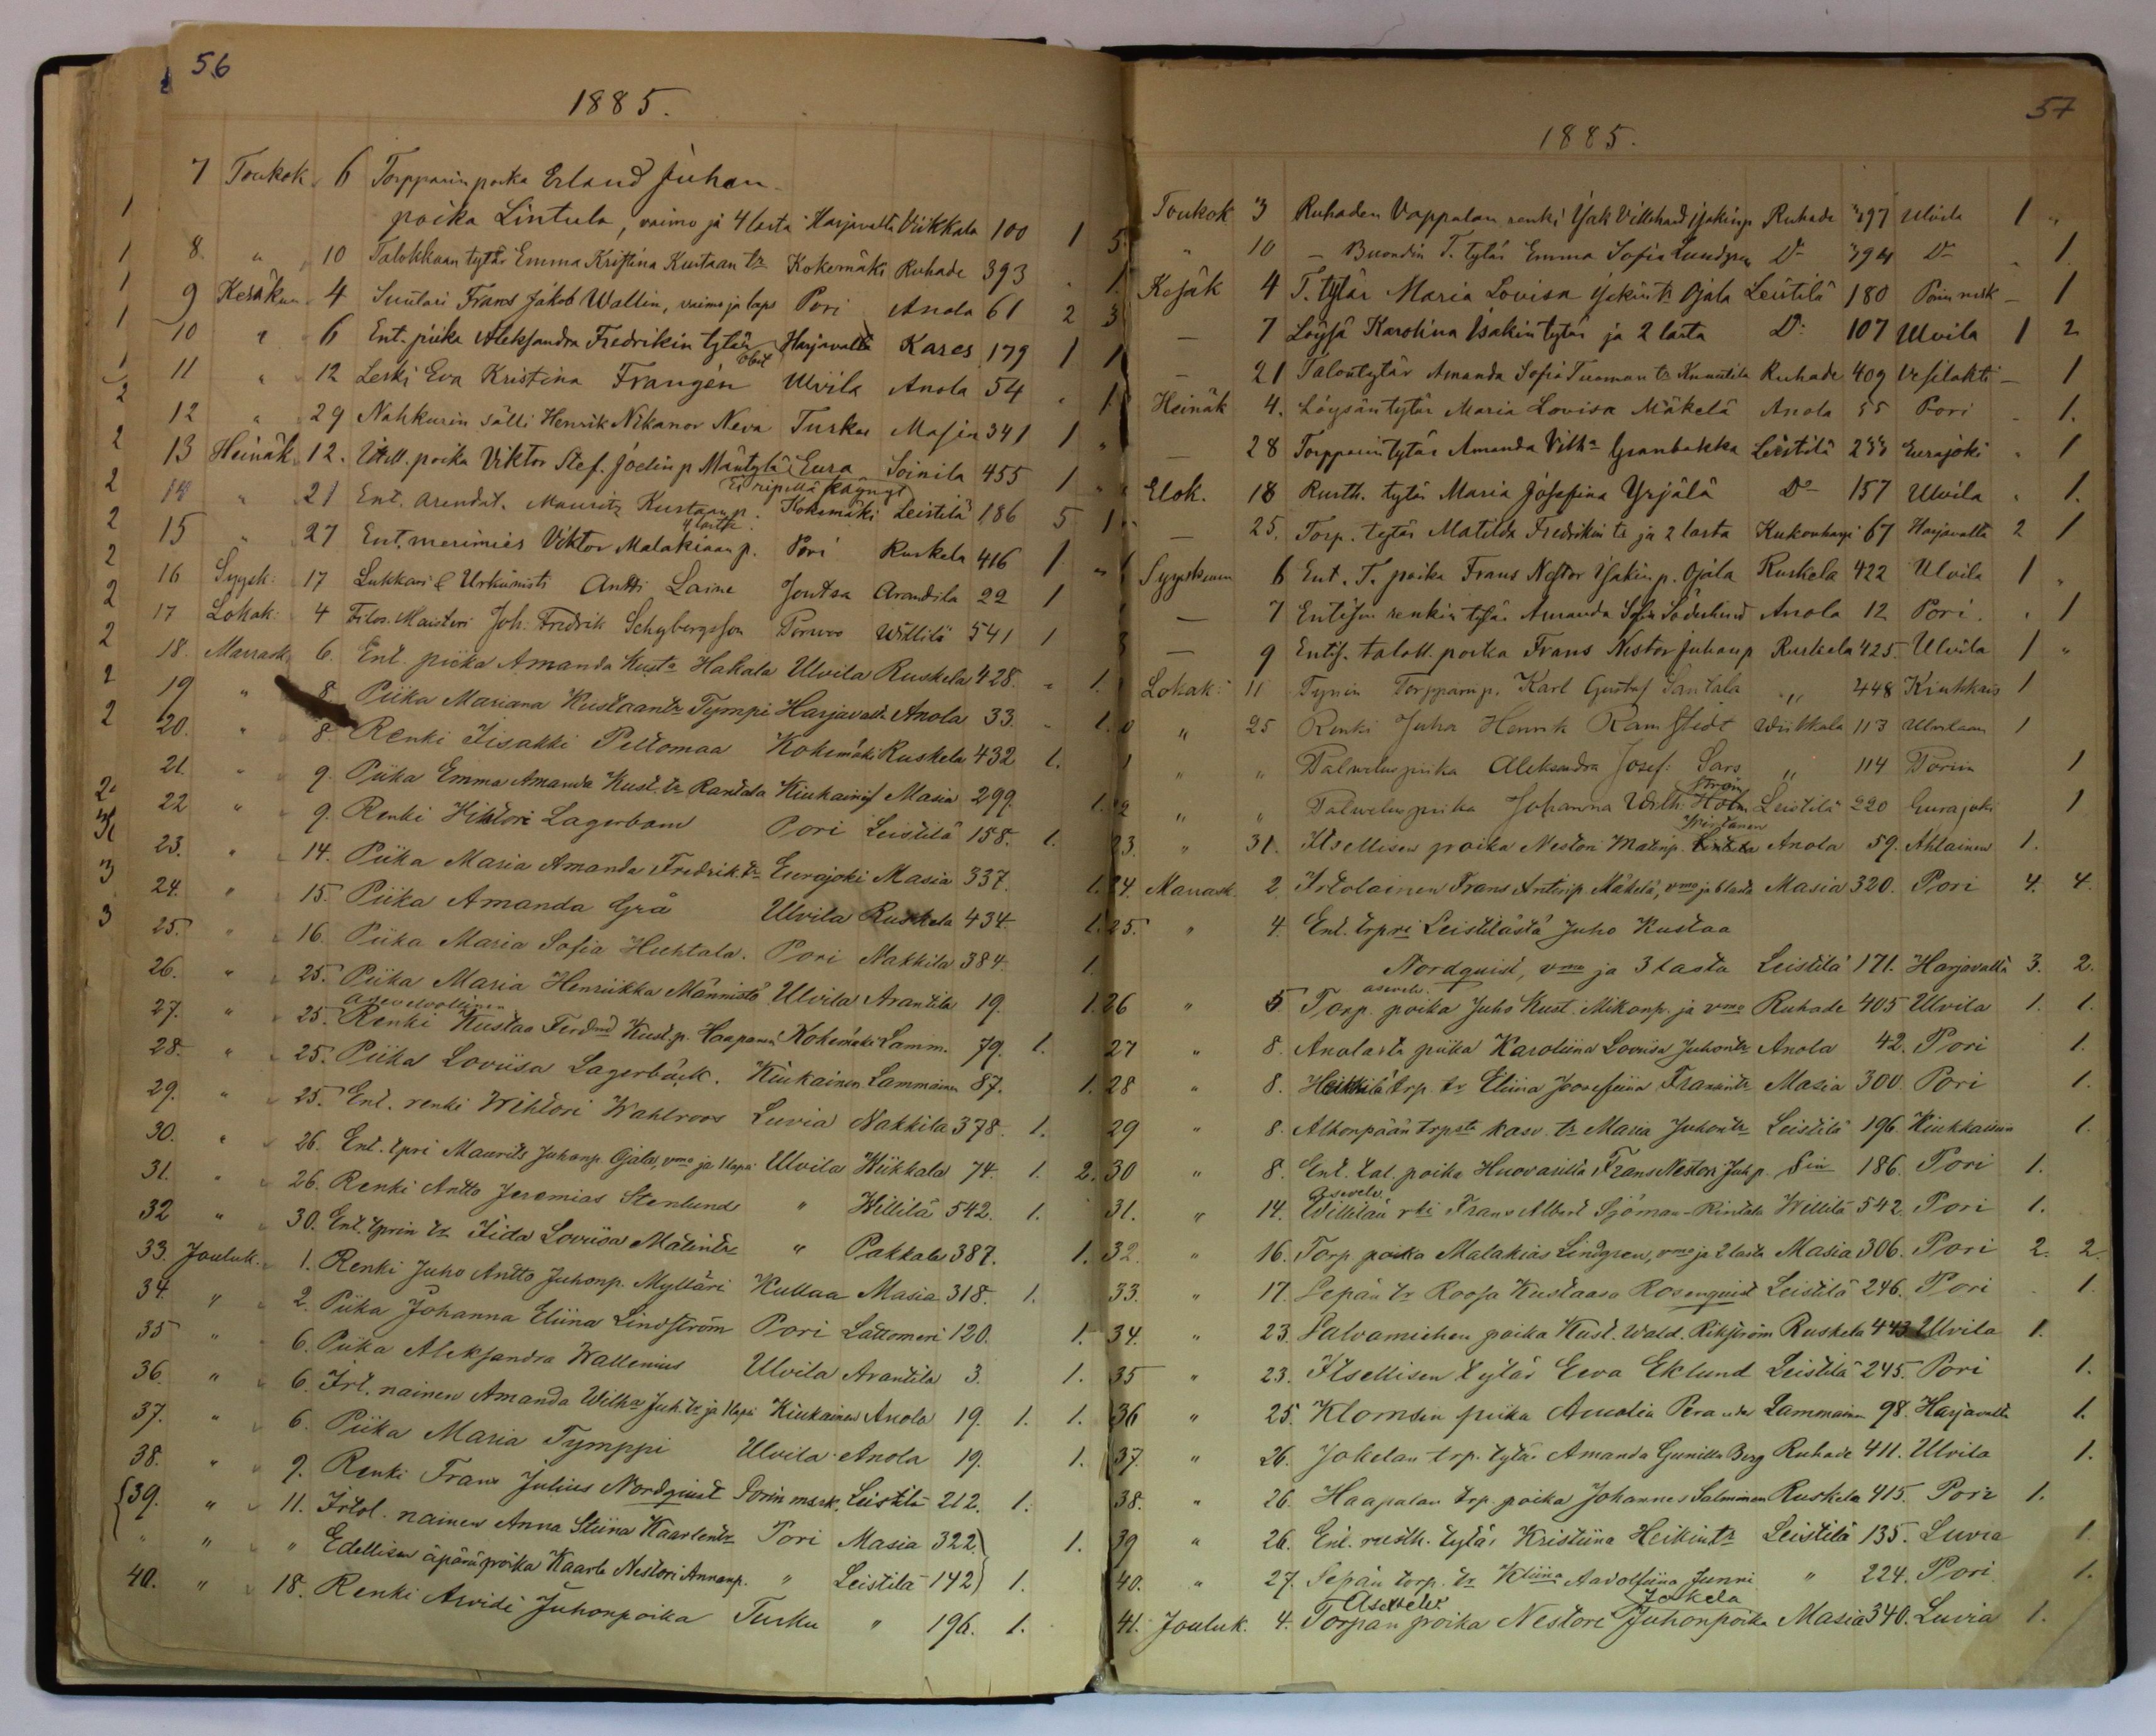 56
1885.
7 Toukok. 6 Torpparin poika Erland Juhan
1 poika Lintula, vaimo ja 4 lasta Harjavalta Viikkala 100 1 5
1 8. " 10 Talokkaan tytär Emma Kristina Kustaan tr Kokemäki Ruhade 393 " 1.
1 9 Kesäkuu 4 Suutari Frans Jakob Wallin, vaimo ja laps Pori Anola 61 2 3
1 10 " 6 Ent. piika Aleksandra Fredrikin tytär Harjavalta Kares 179 1 1
1 11 " 12 Leski Eva Kristina Frangén Ulvila Anola 54 " 1
2 12 " 29 Nahkurin sälli Henrik Nikanor Neva Turku Masia 341 1 "
2 13 Heinäk. 12. poika Viktor Stef. Joelin p Mäntylä Eura Soinila 455 1 "
Ei ripillä käynyt
2 14 " 21 Ent. arendat. Mauritz Kustaan p. Kokemäki Leistilä 186 5 1
4 lasta
2 15 " 27 Ent. merimies Viktor Malakiaan p. Pori Ruskela 416 1 "
2 16 Syysk: 17 Lukkari & Urkunisti Antti Laine Joutsa Arandila 22 1
2 17 Lokak: 4 Filos. Maisteri Joh. Fredrik Schybergsson Porvoo Willilä 541 1
2 18. Marrask. 6. Ent. piika Amanda Kusta Hakala Ulvila Ruskela 428. " 1.
2 19 " 8. Piika Mariana Kustaantr Tympi Harjavalta Anola 33. " 1.
2 20. " 8. Renki Iisakki Peltomaa Kokemäki Ruskela 432 1.
21. " 9. Piika Emma Amanda Kust. tr Rantala Kiukainen Masia 299. 1.
2 22 " 9. Renki Wihtori Lagerbom Pori Leistilä 158. 1.
3 23. " 14. Piika Maria Amanda Fredrik.tr Eurajoki Masia 337. 1.
3 24. " 15. Piika Amanda Grå Ulvila Ruskela 434. 1.
3 25. " 16. Piika Maria Sofia Huhtala. Pori Nakkila 384. 1.
26. " 25. Piika Maria Henriikka Männistö Ulvila Arantila 19. 1.
asevelvollinen
27. " 25. Renki Kustaa Ferdnd Kust.p. Haapanen Kokemäki Lamm. 79. 1.
28. " 25. Piika Loviisa Lagerbäck. Kiukainen Lammainen 87. 1.
29. " 25. Ent. renki Wihtori Wahlroos Luvia Nakkila 378. 1.
30. " 26. Ent. tpri Maurits Juhonp. Ojala, vmo ja 1 lapsi Ulvila Wiikkala 74. 1. 2.
31. " 26. Renki Antto Jeremias Stenlund " Willilä 542. 1.
32 " 30. Ent. tprin tr Iida Loviisa Matintr " Pakkala 387. 1.
33. Jouluk. 1. Renki Juho Antto Juhonp. Mylläri Kullaa Masia 318. 1.
34. " 2. Piika Johanna Eliina Lindström Pori Lattomeri 120. 1.
35 " 6. Piika Aleksandra Wallenius Ulvila Arantila 3. 1.
36. " 6. Irt. nainen Amanda Wilha Juh.tr ja 1 lapsi Kiukainen Anola 19. 1. 1.
37. " 6. Piika Maria Tymppi Ulvila Anola 19. 1.
38. " 9. Renki Frans Julius Nordquist Porin mask. Leistilä 212. 1.
39. " 11. Irtol. nainen Anna Stiina Kaarlentr Pori Masia 322. 1.
" " " Edellisen äpärä poika Kaarle Nestori Annanp. " Leistilä 142 1.
40. " 18. Renki Arvidi Juhonpoika Turku " 196. 1.
57
1885.
Toukok. 3 Ruhaden Vappalan renki Isak Villehard Isakinp Ruhade 397 Ulvila 1 "
" 10 T. tytär Emma Sofia Lundgren Do 394 Do " 1
Kesäk 4 T. tytär Maria Lovisa Isakintr Ojala Leistilä 180 Porin msk — 1
— 7 Löysä Karolina Isakin tytär ja 2 lasta Do: 107 Ulvila 1 2
— 21 Talontytär Amanda Sofia Tuoman tr Knuutila Ruhade 409 Vesilahti — 1
Heinäk 4. Löysäntytär Maria Lovisa Mäkelä Anola 55 Pori - 1.
— 28 Torpparin tytär Amanda Vilha Granbakka Leistilä 233 Eurajoki " 1
Elok. 18 Rusth. tytär Maria Josefina Yrjälä Do 157 Ulvila " 1.
— 25. Torp. tytär Matilda Fredrikin tr ja 2 lasta Kukonharja 67 Harjavalta 2 1
Syyskuun 6 Ent. T. poika Frans Nestor Isakin p. Ojala Ruskela 422 Ulvila 1 "
— 7 Entisen renkin tytär Amanda Sofia Söderlund Anola 12 Pori. " 1
— 9 Entis. taloll. poika Frans Nestor Juhanp Ruskela 425. Ulvila 1 "
Lokak: 11 Tynin Torpparinp. Karl Gustaf Santala " 448 Kiukkais 1
" 25 Renki Juha Henrik Ramstedt Wiikkala 113 Ulvilaan 1
" " Palvelus piika Aleksandra Josef: Lars " 114 Poriin 1
Ström
22 " " Palvelus piika Johanna Wilh: Holm Leistilä 220 Eurajoki 1
Wirtanen
23. " 31. Itsellisen poika Nestori Matinp. Anola 59. Ahlainen 1.
24. Marrask. 2. Irtolainen Frans Anttinp. Mäkelä, vmo ja 6 lasta Masia 320. Pori 4. 4.
25. " 4. Ent. trpri Leistilästä Juho Kustaa
Nordquist, vmo ja 3 lasta Leistilä 171. Harjavalta 3. 2.
asevelv.
26 " 5 Torp. poika Juho Kust. Mikonp. ja vmo Ruhade 405 Ulvila 1. 1.
27 " 8. Anolasta piika Karoliina Loviisa Juhontr Anola 42. Pori 1.
28 " 8. Heikkilä trp. tr Eliina Joosefiina Fransintr Masia 300. Pori 1.
29 " 8. Alhonpään trpsta kasv. tr Maria Juhontr Leistilä 196. Kiukkainen 1.
30 " 8. Ent. tal. poika Huovarilta Frans Nestori Juh.p. 186. Pori 1.
asevelv.
31. " 14. Willilän rki Frans Albert Sjöman-Rintala Willilä 542. Pori 1.
32. " 16. Torp. poika Malakias Lindgren, vmo ja 2 lasta Masia 306. Pori 2. 2.
33. " 17. Sepän tr Roosa Kustaava Rosenquist Leistilä 246. Pori 1.
34. " 23. Salvamiehen poika Kust. Wald. Rikström Ruskela 443 Ulvila 1.
35 " 23. Itsellisen tytär Eeva Eklund Leistilä 245. Pori 1.
36 " 25. piika Amalia Lammainen 98. Harjavalta 1.
37. " 26. Jokelan trp. tytär Amanda Gunilla Berg Ruhade 411. Ulvila 1.
38. " 26. Haapalan trp. poika Johannes Salminen Ruskela 415. Pori 1.
39 " 26. Ent. rusth. tytär Kristiina Heikintr Leistilä 135. Luvia 1.
40. " 27. Sepän torp. tr Aadolfiina Junni " 224. Pori 1.
Asevelv. Jokela
41. Jouluk. 4. Torpan poika Nestori Juhonpoika Masia 340. Luvia 1.